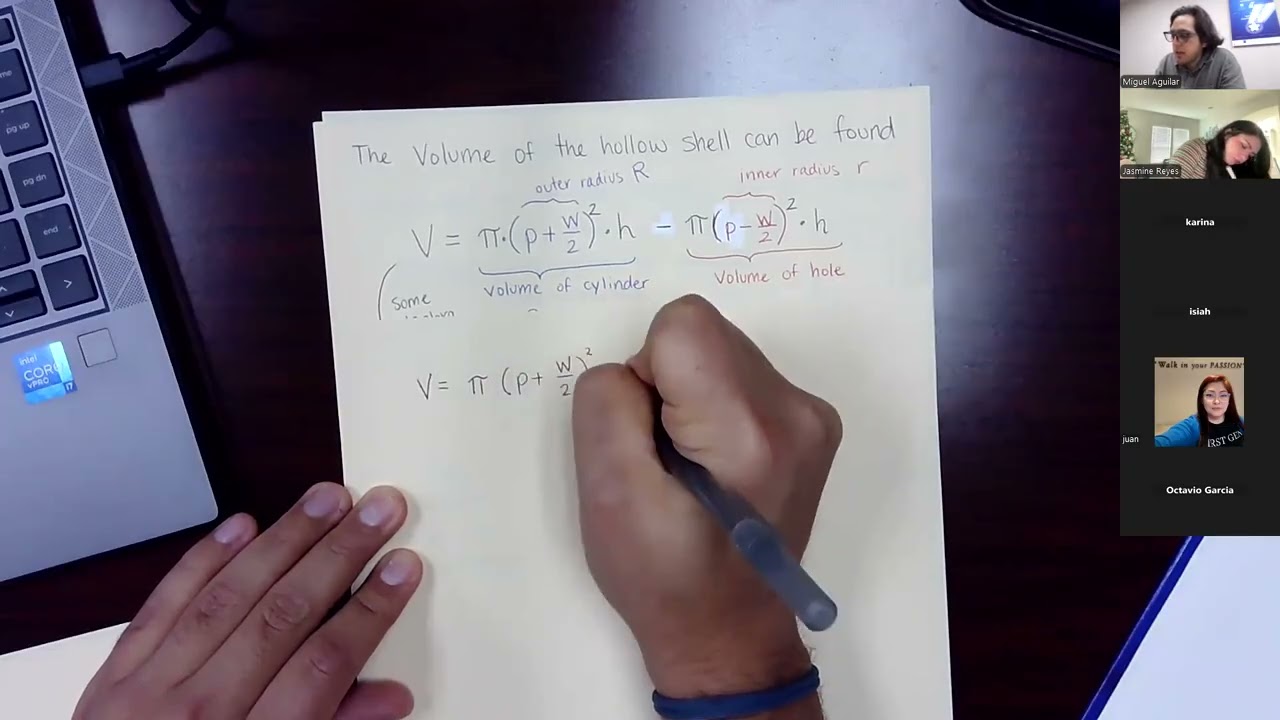 The Volume of the hollow shell can be found
outer radius R
inner radius r
V = π·(p+W/2)²·h − π(p−W/2)²·h
volume of cylinder
Volume of hole
(some
V= π (p+ W/2)²
me
pg up
pg dn
end
intel
CORE
VPRO
i7
Miguel Aguilar
Jasmine Reyes
karina
isiah
"Walk in your PASSION"
IRST GEN
juan
Octavio Garcia